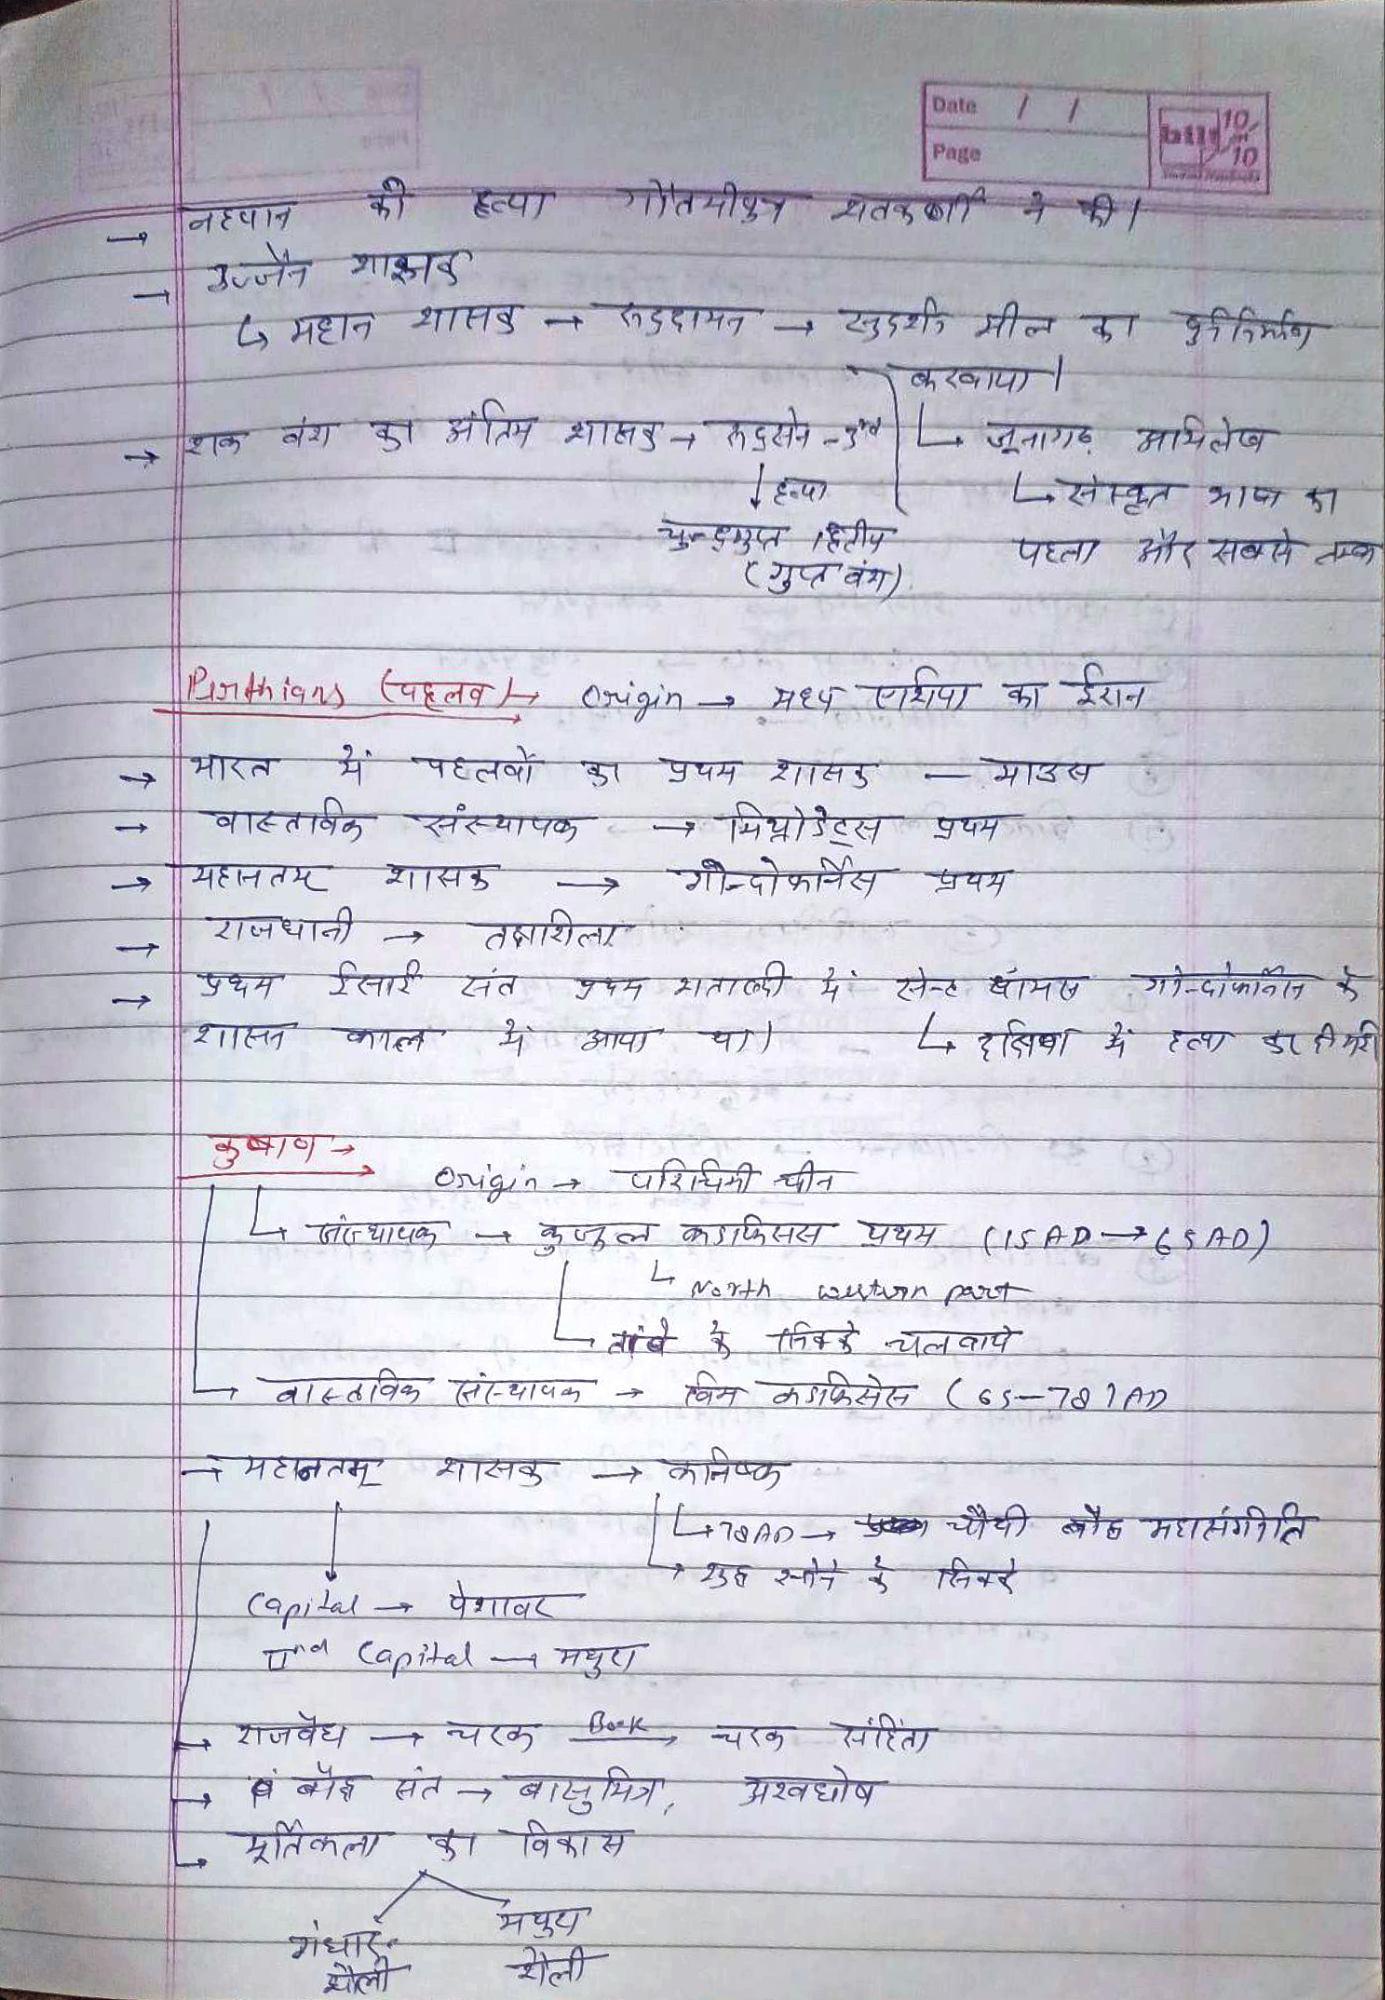 Date / /
Page
10 on 10
→ नहपान की हत्या गौतमीपुत्र शतकर्णी ने की।
→ उज्जैन शाखा
↳ महान शासक → रुद्रदामन → सुदर्शन झील का पुर्ननिर्माण
करवाया।
→ शक वंश का अंतिम शासक → रुद्रसेन - 3rd
↳ जूनागढ़ अभिलेख
↓ हत्या
↳ संस्कृत भाषा का
चन्द्रगुप्त द्वितीय
पहला और सबसे
(गुप्त वंश)
Parthians (पहलव) → Origin → मध्य एशिया का ईरान
→ भारत में पहलवों का प्रथम शासक — माउस
→ वास्तविक संस्थापक → मिथ्रोडेट्स प्रथम
→ महानतम् शासक → गोन्दोफर्निस प्रथम
→ राजधानी → तक्षशिला
→ प्रथम ईसाई संत प्रथम शताब्दी में सेन्ट थॉमस गोन्दोफर्निस के
शासन काल में आया था। ↳ दक्षिण में हत्या कर दी गयी
कुषाण →
Origin → पश्चिमी चीन
↳ संस्थापक → कुजुल कडफिसस प्रथम (15 AD → 65 AD)
↳ North western part
↳ तांबे के सिक्के चलवाये
↳ वास्तविक संस्थापक → विम कडफिसेस (65-78) AD
→ महानतम् शासक → कनिष्क
↳ 78 AD → चौथी बौद्ध महासंगीति
↳ शुद्ध सोने के सिक्के
Capital → पेशावर
IInd Capital → मथुरा
↳ राजवैद्य → चरक Book → चरक संहिता
↳ बौद्ध संत → वासुमित्र, अश्वघोष
↳ मूर्तिकला का विकास
गंधार मथुरा
शैली शैली